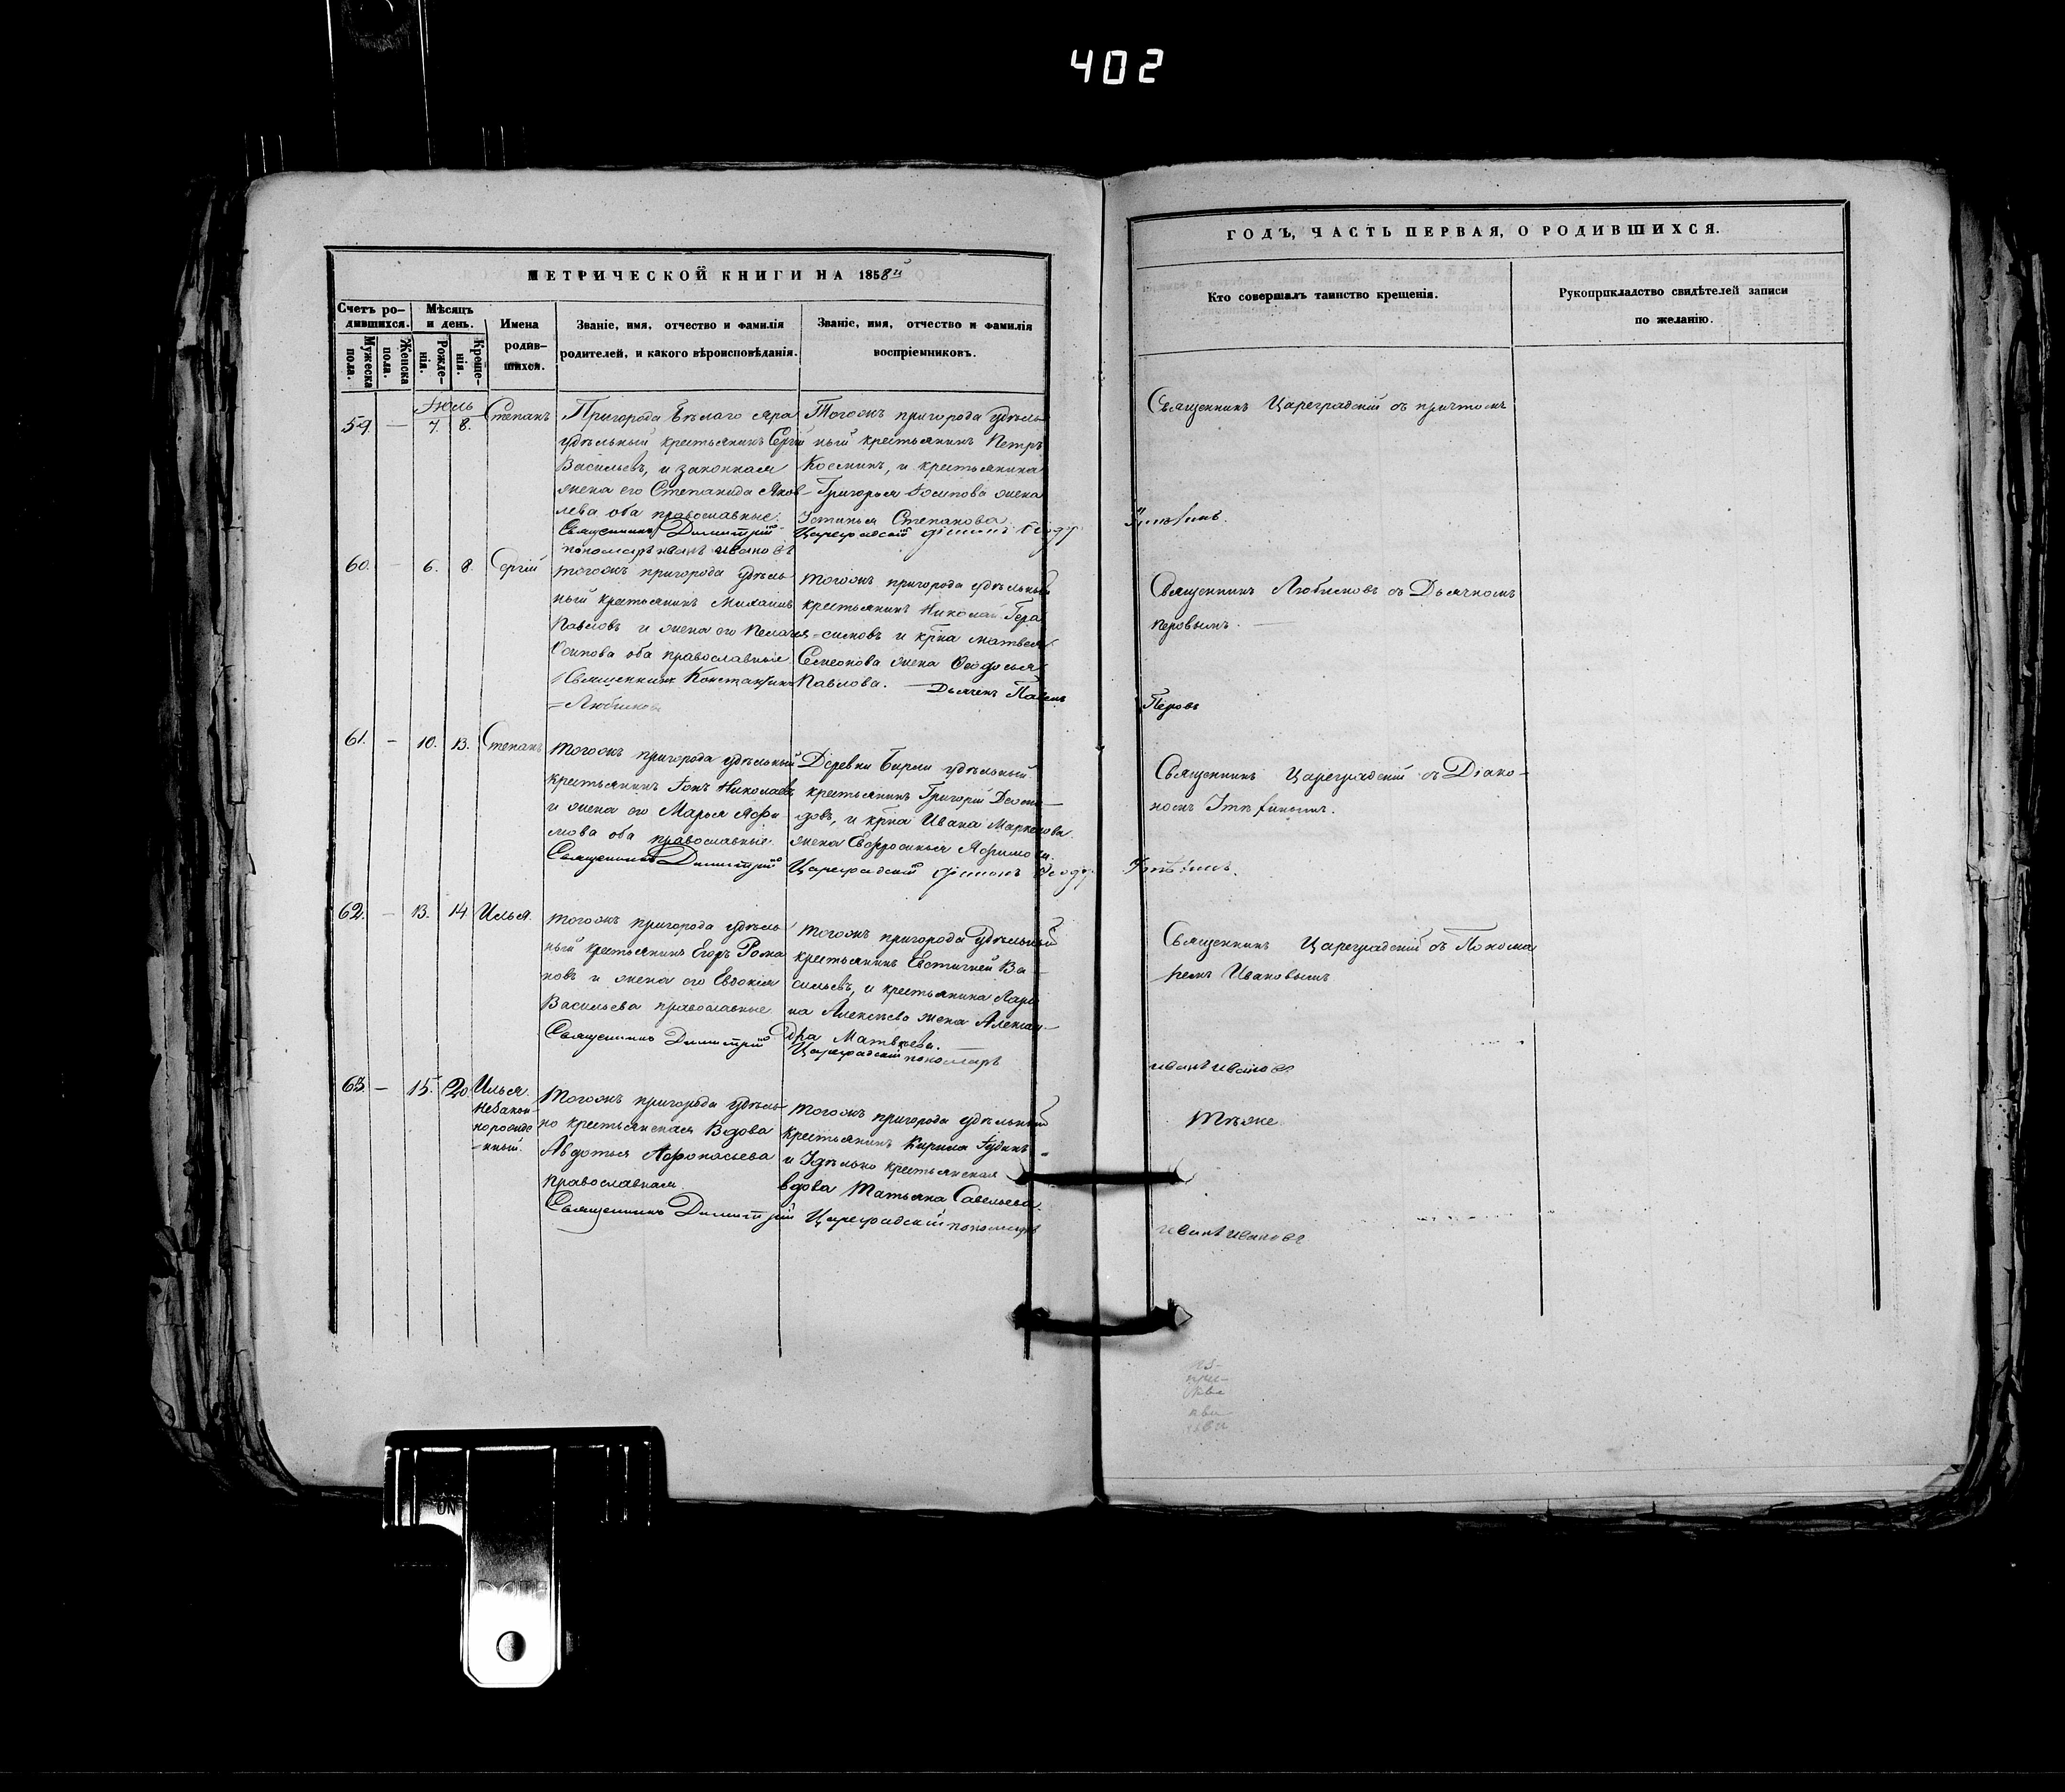 402
МЕТРИЧЕСКОЙ КНИГИ НА 1858й
Счетъ ро-
дившихся.
Мужеска
пола.
Женска
пола.
Мѣсяцъ
и день.
Рожде-
нія.
Креще-
нія.
Имена
родив-
шихся.
Званіе, имя, отчество и фамилія
родителей, и какого вѣроисповѣданія.
Званіе, имя, отчество и фамилія
воспріемниковъ.
ГОДЪ, ЧАСТЬ ПЕРВАЯ, О РОДИВШИХСЯ.
Кто совершалъ таинство крещенія.
Рукоприкладство свидѣтелей записи
по желанію.
Іюль
59. — 7. 8. Степанъ
Пригорода Бѣлаго Яра
удѣльный крестьянинъ Сергій
Васильевъ, и законная
жена его Степанида Яков-
лева оба православные.
Священникъ Димитрій
пономарь иванъ ивановъ
Тогожъ пригорода удѣль
ный крестьянинъ Петръ
Косминъ, и крестьянина
Григорья Осипова жена
Устинья Степанова
Цареградскій
Священникъ Цареградскій съ причтомъ
60. — 6. 8. Сергій
тогожъ пригорода удѣль
ный крестьянинъ Михаилъ
Павловъ и жена его Пелагея
Осипова оба православные
Священникъ Константинъ
Любимовъ
тогожъ пригорода удѣльный
крестьянинъ Николай Гера
симовъ и кр̃на Матвея
Семенова жена Ѳеодосья
Павлова. — Дьячекъ Павелъ
Священникъ Любимовъ съ Дьячкомъ
Перовымъ. —
Перовъ
61. — 10. 13. Степанъ
Тогожъ пригорода удѣльный
крестьянинъ Іонъ Николаевъ
и жена его Марья Афи
мова оба православные.
Священникъ Димитрій
Деревни Бирли удѣльный
крестьянинъ Григорій
довъ, и кр̃на Ивана
жена Евфросинья
Цареградскій
Священникъ Цареградскій съ Діако-
номъ
62. — 13. 14 Илья.
тогожъ пригорода удѣль
ный крестьянинъ Егоръ Рома
новъ и жена его Евдокія
Васильева православные
Священникъ Димитрій
тогожъ пригорода удѣльный
крестьянинъ Евстигней Ва
сильевъ, и крестьянина Лари
на Алексѣева жена Алексан-
дра Матвѣева.
Цареградскій пономарь
Священникъ Цареградскій съ Понома
ремъ Ивановымъ
иванъ ивановъ
63. — 15. 20 Илья.
незакон-
норожде
-нный.
Тогожъ пригорода удѣль
но крестьянская Вдова
Авдотья Афонасьева
православная
Священникъ Димитрій
тогожъ пригорода удѣльный
крестьянинъ Кирила
и Удѣльно крестьянская
вдова Татьяна Савельева
Цареградскій пономарь
Тѣже.
иванъ ивановъ